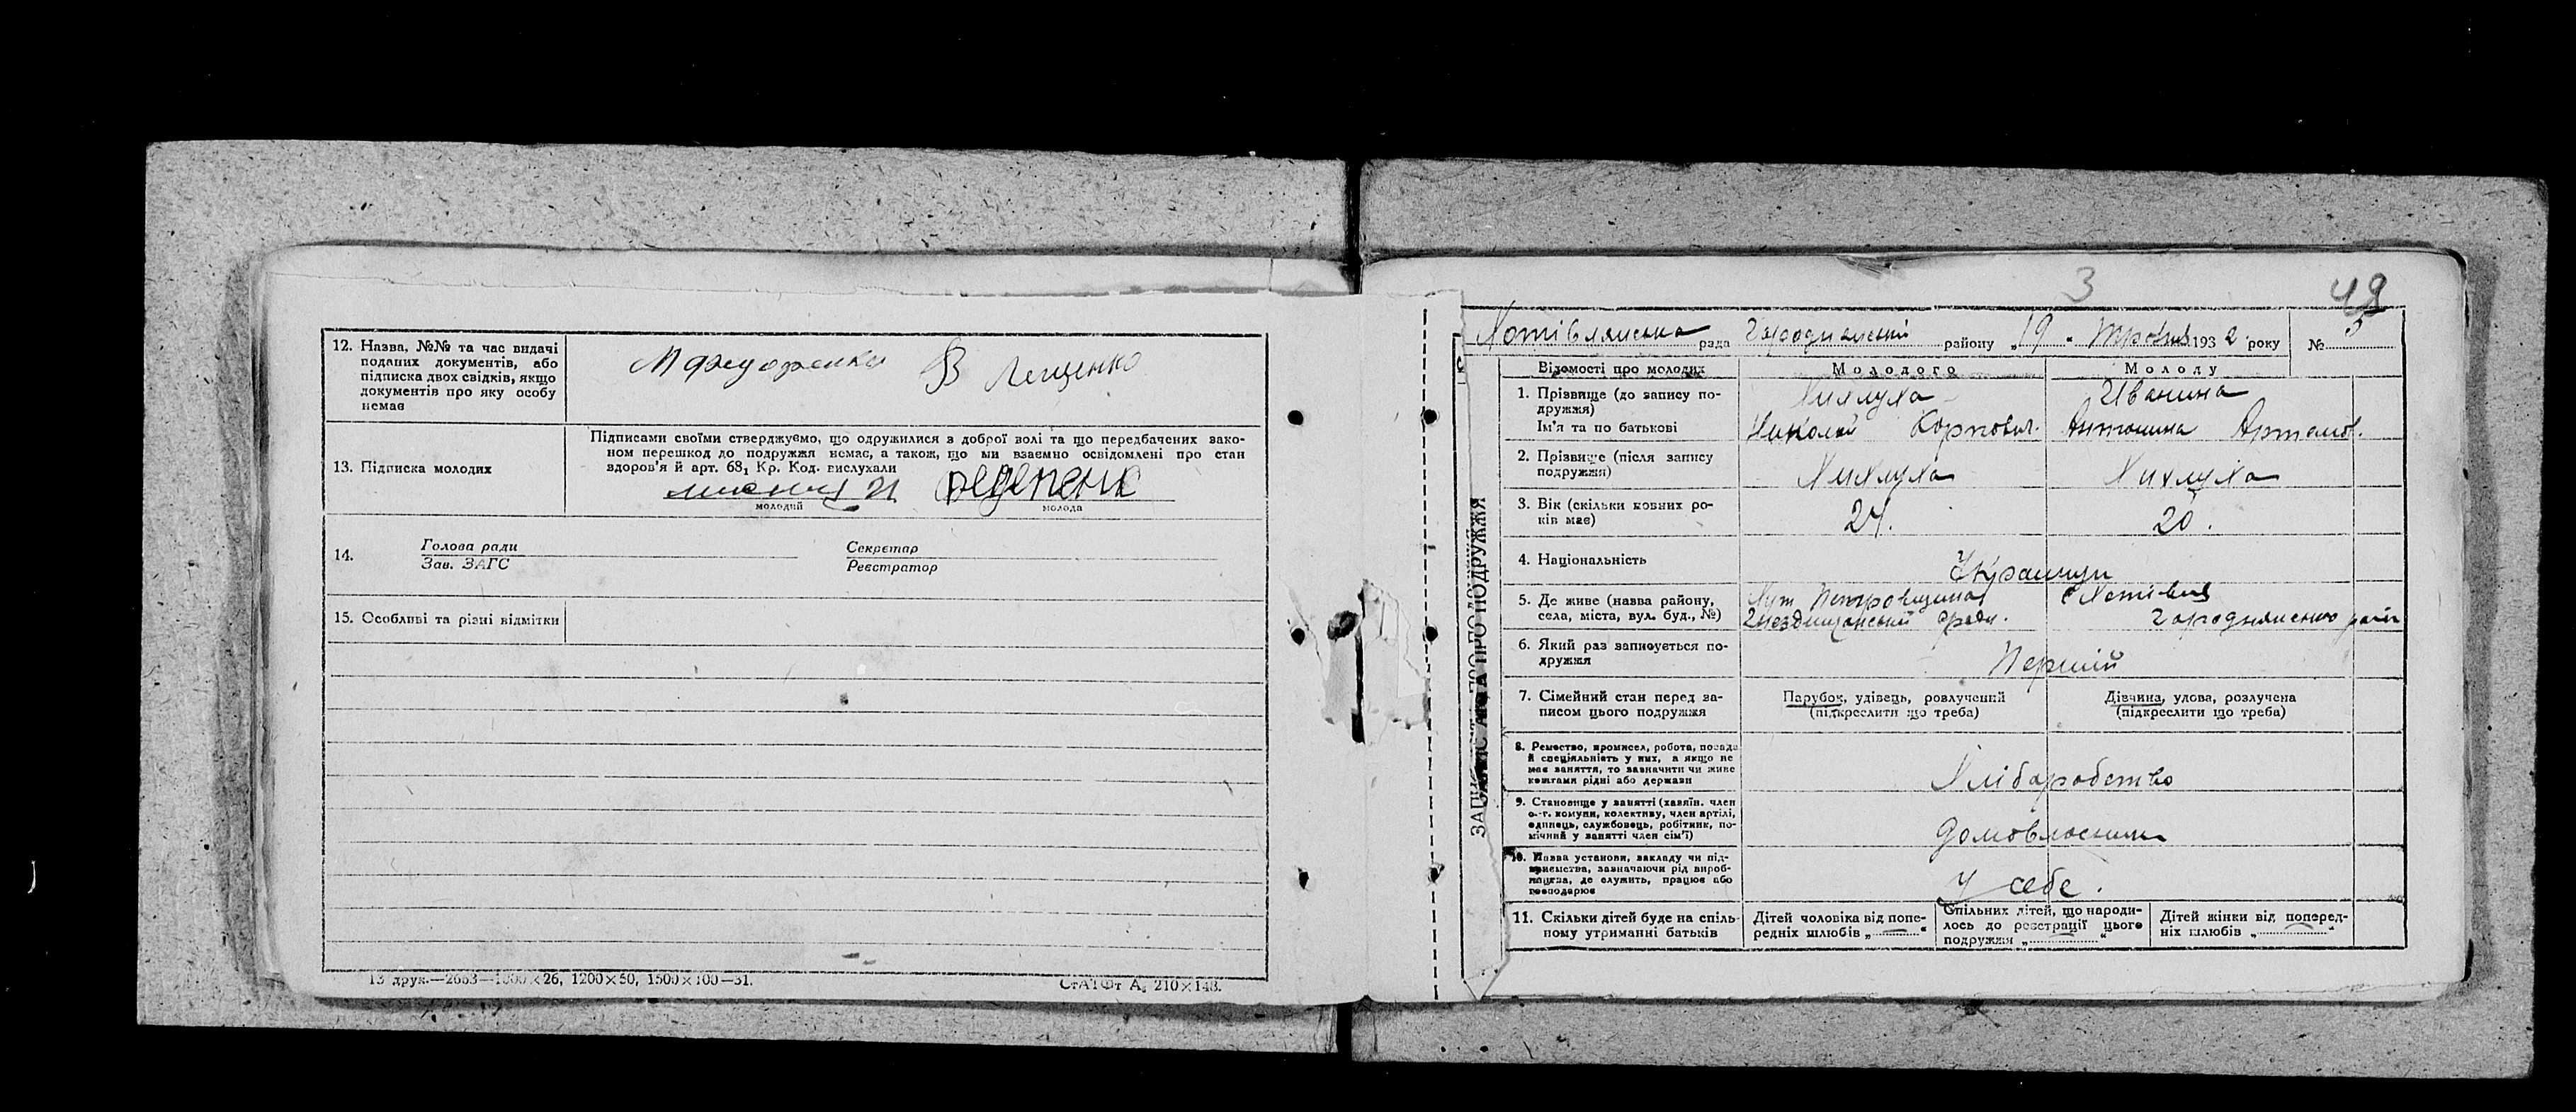 12. Назва, №№ та час видачі
поданих документів, або
підписка двох свідків, якщо
документів про яку особу
немає
В Лещенко
13. Підписка молодих
Підписами своїми стверджуємо, що одружилися з доброї волі та що передбачених зако-
ном перешкод до подружжя немає, а також, що ми взаємно освідомлені про стан
здоров'я й арт. 68₁ Кр. Код. вислухали
молодий
молода
14.
Голова ради
Зав. ЗАГС
Секретар
Реєстратор
15. Особливі та різні відмітки
СтАТФт А₅ 210×148.
3
49
Хотівлянська рада Городнянський району „19 " Травня 1932 року № 5
ЗАПИС АКТА ПРО ПОДРУЖЖЯ
Відомості про молодих
Молодого
Молоду
1. Прізвище (до запису по-
дружжя)
Ім'я та по батькові
Иванина
Николай Карпович.
Антонина Артемов.
2. Прізвище (після запису
подружжя)
3. Вік (скільки повних ро-
ків має)
24.
20.
4. Національність
Українци
5. Де живе (назва району,
села, міста, вул. буд., №)
Хут Петровщина
Гнездищанської Ради.
с Хотівля
Городнянского рай
6. Який раз записується по-
дружжя
Перший
7. Сімейний стан перед за-
писом цього подружжя
Парубок, удівець, розлучений
(підкреслити що треба)
Дівчина, удова, розлучена
(підкреслити що треба)
8. Ремество, промисел, робота, посада
й спеціяльність у них, а якщо не
має заняття, то зазначити чи живе
коштами рідні або держави
Хліборобство
9. Становище у занятті (хазяїн, член
с.-г. комуни, колективу, член артілі,
одинець, службовець, робітник, по-
мічний у занятті член сім'ї)
10. Назва установи, закладу чи під-
приємства, зазначаючи рід вироб-
ництва, де служить, працює або
господарює
У себе.
11. Скільки дітей буде на спіль-
ному утриманні батьків
Дітей чоловіка від попе-
редніх шлюбів „ — "
Спільних дітей, що народи-
лось до реєстрації цього
подружжя „ — "
Дітей жінки від поперед-
ніх шлюбів „ — "